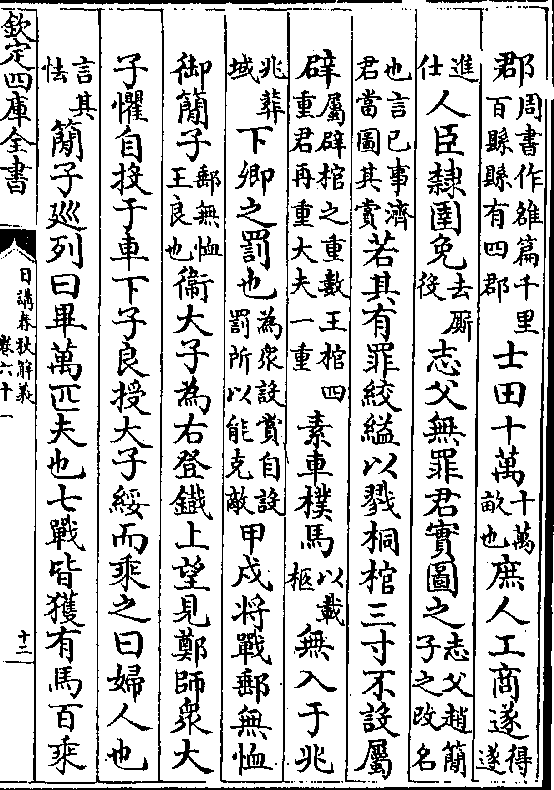 郡周書作雒篇千里百縣縣有四郡士田十萬十萬畝也庶人工商遂得遂
進仕人臣隸圉免去廝役志父無罪君實圖之志父趙簡子之改名
也言已事濟君當圖其賞若其有罪絞縊以戮桐棺三寸不設屬
辟屬辟棺之重數王棺四重君再重大夫一重素車樸馬以載柩無入于兆
兆葬域下卿之罰也為衆設賞自設罰所以能克敵甲戌將戰郵無恤
御簡子郵無恤王良也衞大子為右登鐵上望見鄭師衆大
子懼自投于車下子良授大子綏而乘之曰婦人也
言其怯簡子廵列曰畢萬匹夫也七戰皆獲有馬百乘
欽定四庫全書
日講春秋解義
卷六十一
十二